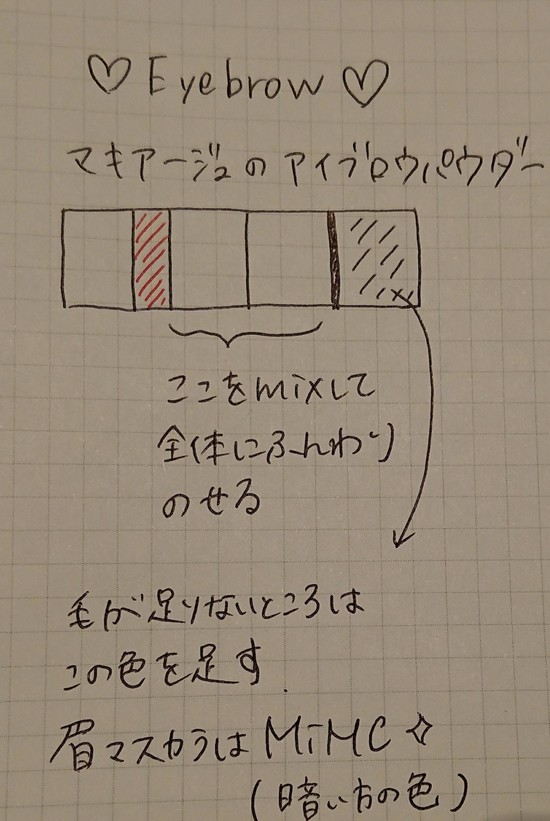 ♡ Eyebrow ♡
マキアージュの アイブロウパウダー
ここをmixして
全体にふんわり
のせる
毛が足りないところは
この色を足す.
眉マスカラは MiMC☆
(暗い方の色)